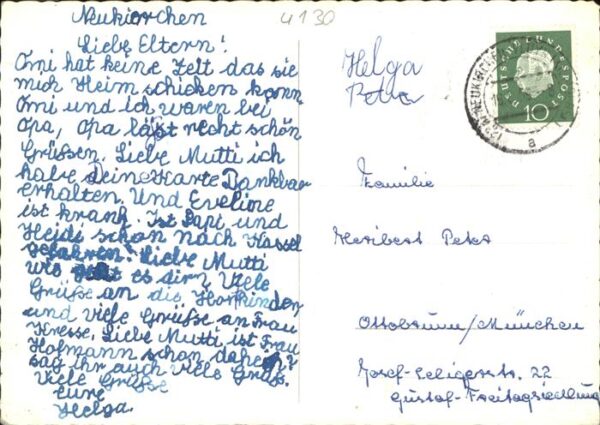 Neukirchen
4130
Liebe Eltern!
Omi hat keine Zeit das sie
mich Heim schicken kann
Omi und ich waren bei
Opa, Opa läst recht schön
Grüßen. Liebe Mutti ich
habe Deine Karte Dankbar
erhalten. Und Eveline
ist krank. Ist Papi und
Heidi schon nach Kassel
gefahren. Liebe Mutti
wie geht es dir? Viele
Grüße an die
und viele Grüße an Frau
Kresse. Liebe Mutti ist Frau
Hofmann schon daheim?
sag ihr auch viele Grüß.
Viele Grüße
Eure
Helga.
Helga
Peter
DEUTSCHE BUNDESPOST
10
NEUKIRCHEN
a
Familie
Heribert Peter
Ottobrunn/München
Josef-Seligerstr. 22
Gustav-Freitagsiedlung